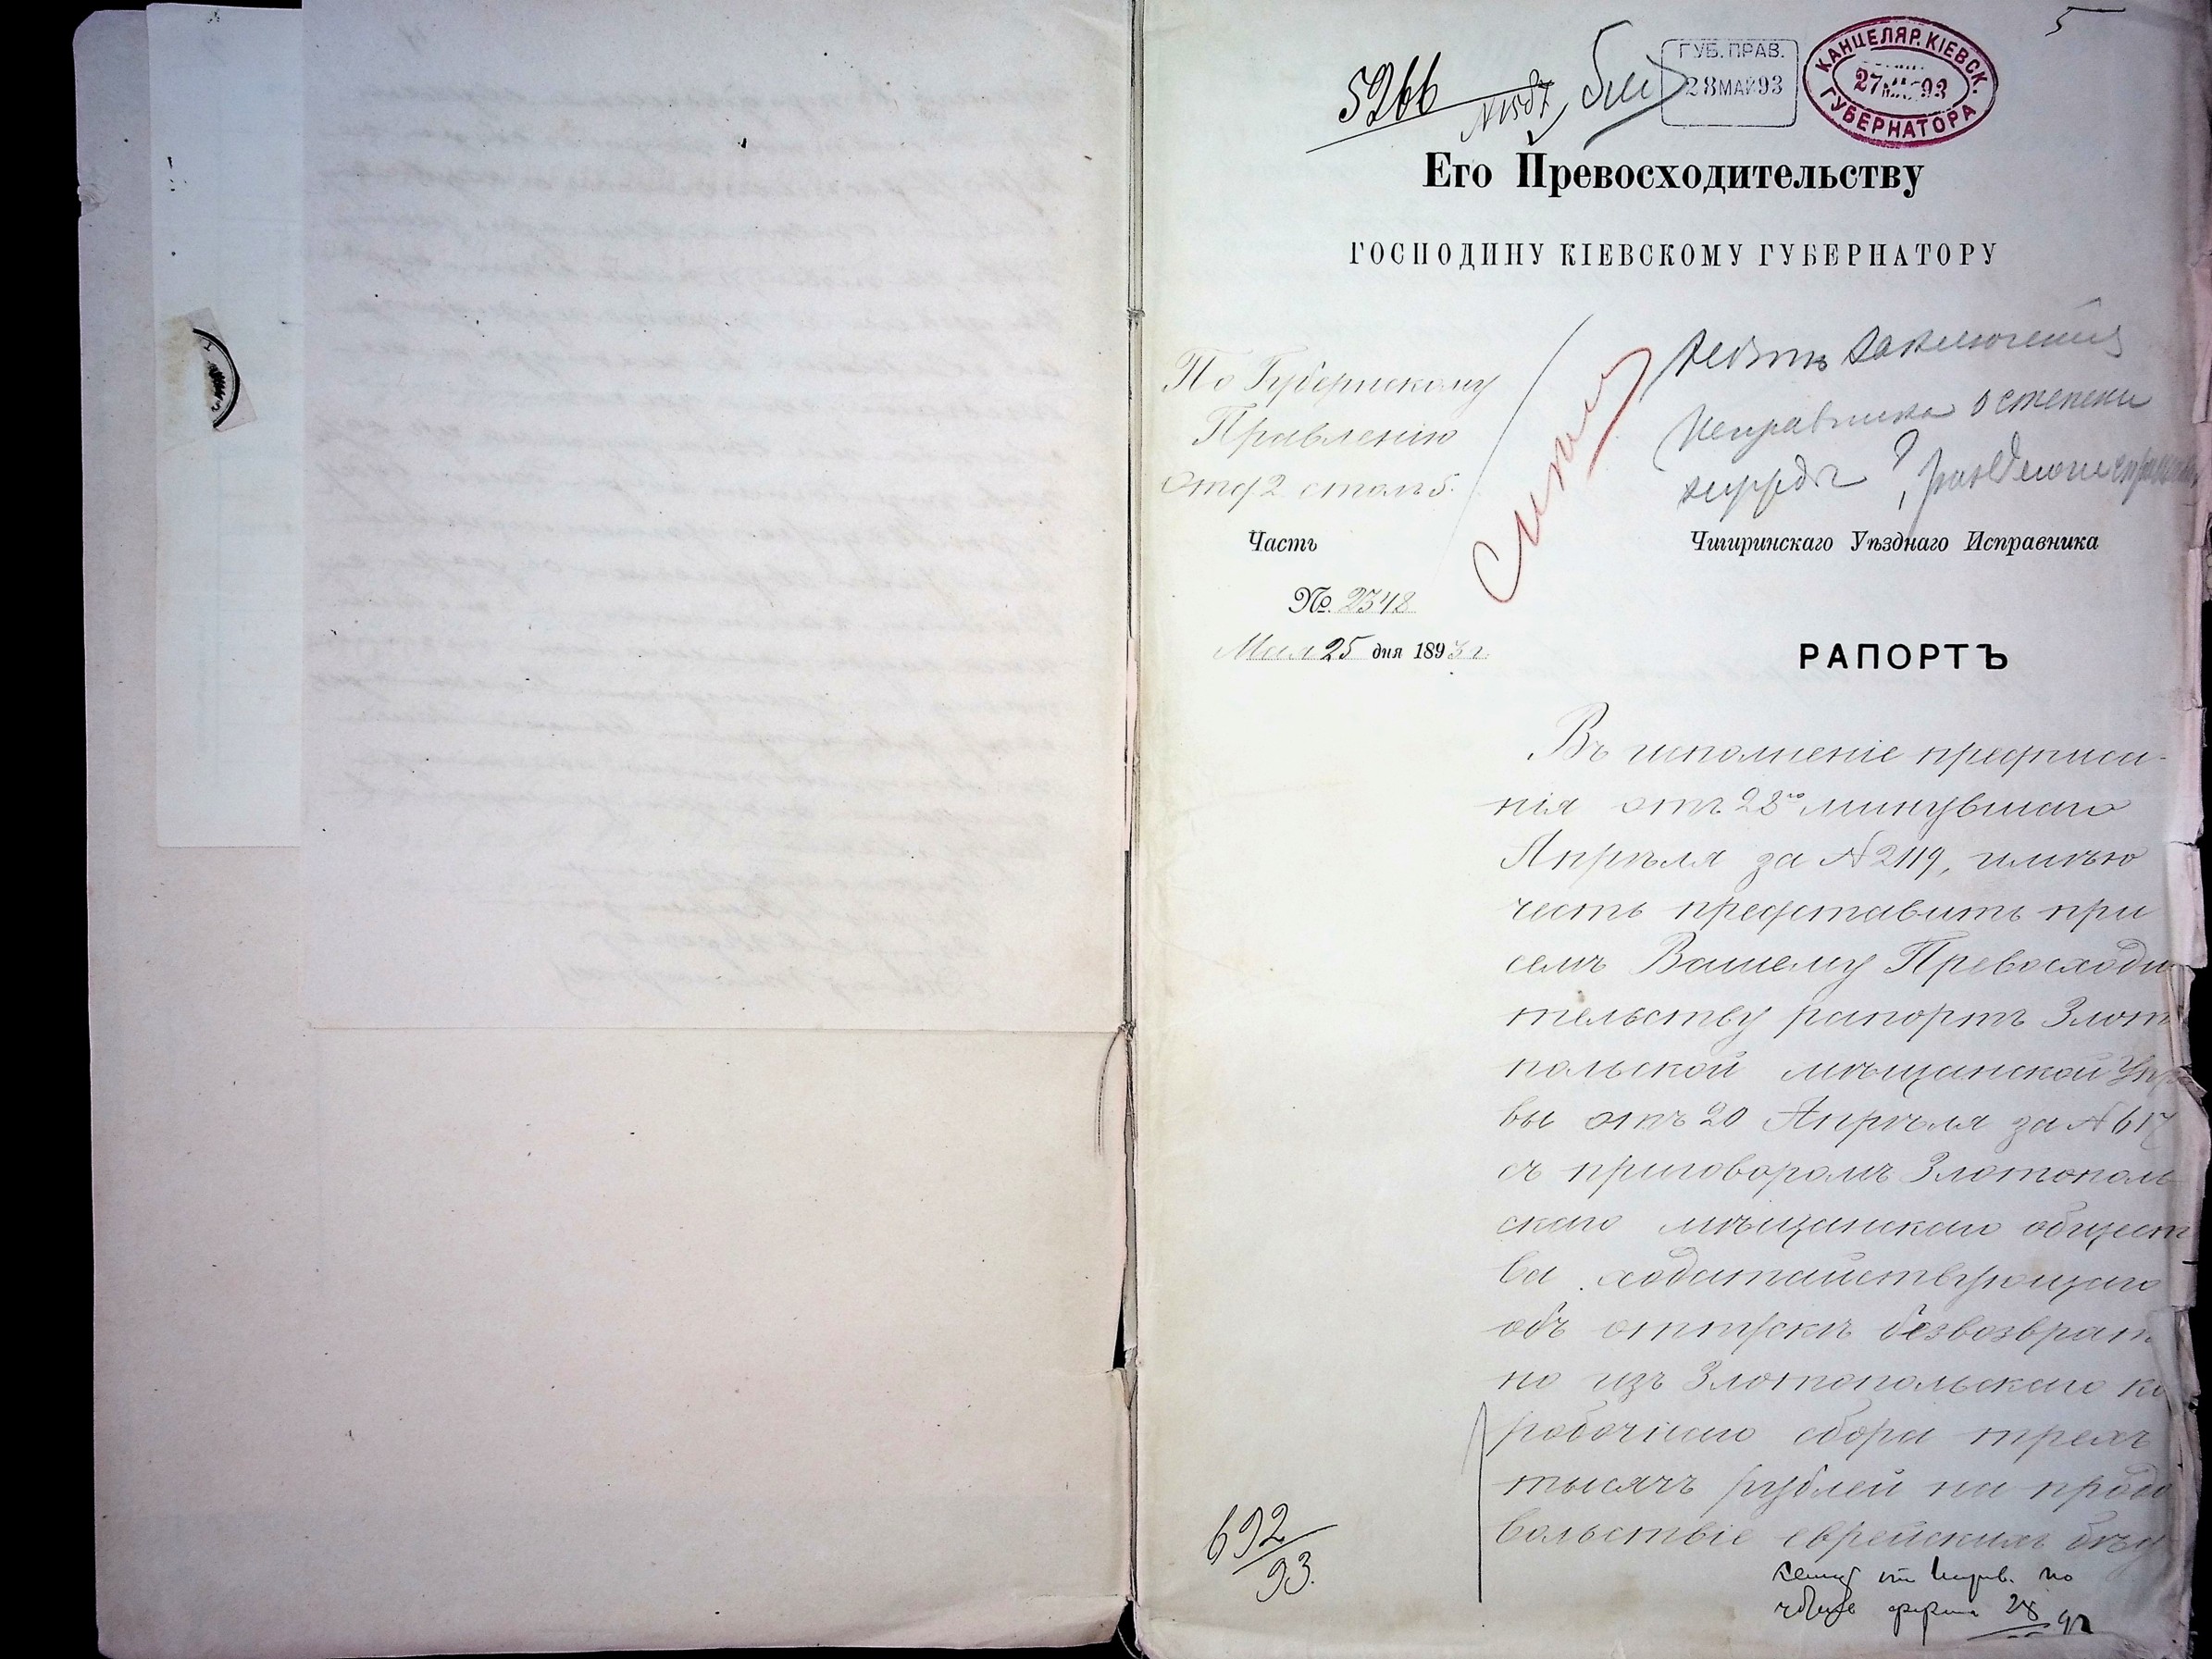 5
5266
ГУБ. ПРАВ.
28 МАЙ 93
КАНЦЕЛЯР. КІЕВСК.
27 93
ГУБЕРНАТОРА
Его Превосходительству
ГОСПОДИНУ КІЕВСКОМУ ГУБЕРНАТОРУ
По Губернскому
Правленію
Отд 2 столъ 5.
заключенія
Исправника о степени
Часть
№ 2348
Мая 25 дня 1893 г.
Чигиринскаго Уѣзднаго Исправника
РАПОРТЪ
Въ исполненіе предписа-
нія отъ 28го минувшаго
Апрѣля за № 2119, имѣю
честь представить при
семъ Вашему Превосходи
тельству рапортъ Злот
польской мѣщанской Упр
вы отъ 20 Апрѣля за № 617
съ приговоромъ Злотополь
скаго мѣщанскаго общест
ва ходатайствующаго
объ отпускѣ безвозврат
но изъ Злотопольскаго ко
робочнаго сбора трехъ
тысячъ рублей на продо
вольствіе еврейскихъ бѣд
692/93.